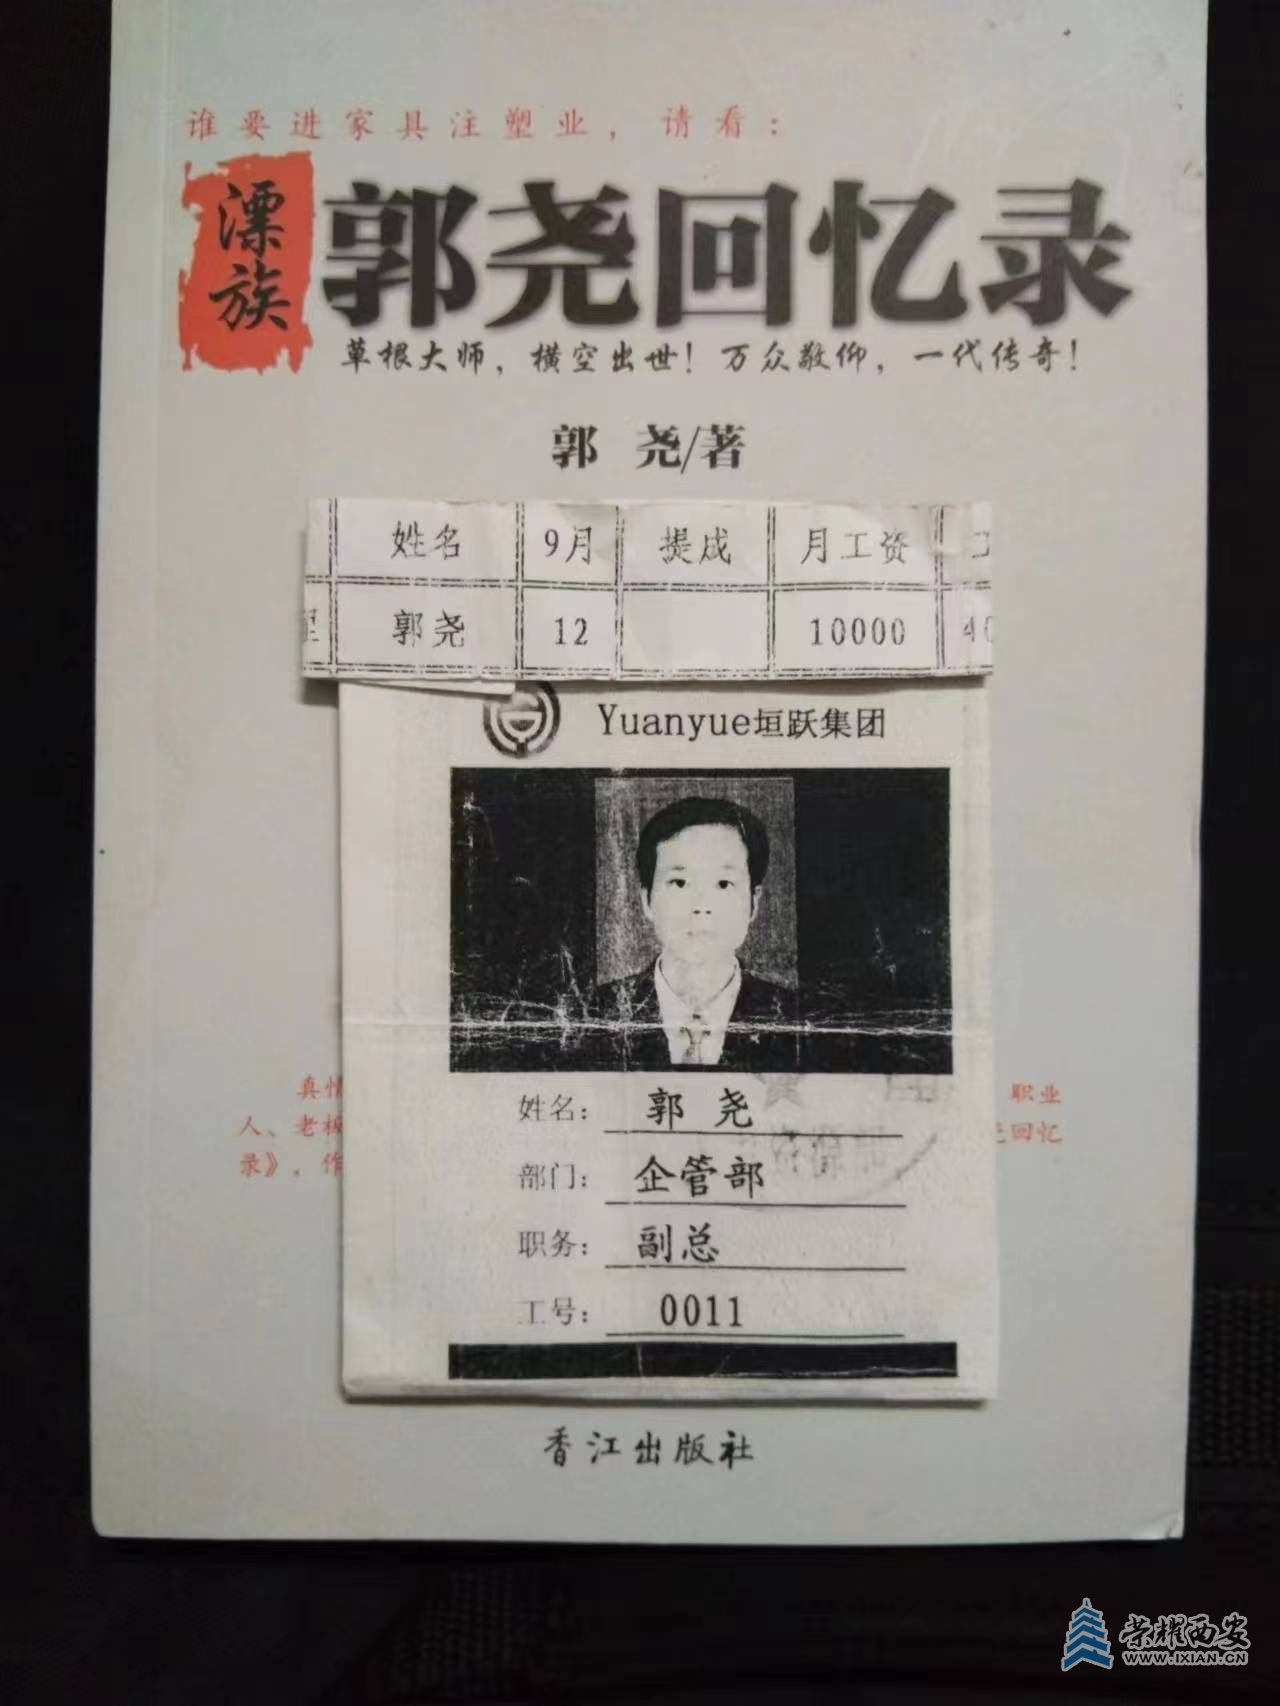 谁要进家具注塑业，请看：
漂族
郭尧回忆录
草根大师，横空出世！万众敬仰，一代传奇！
郭 尧/著
姓名 9月 提成 月工资
郭尧 12 10000
Yuanyue垣跃集团
姓名： 郭 尧
部门： 企管部
职务： 副总
工号： 0011
真情 职业
人、老板 回忆
录》，作
香江出版社
荣耀西安
WWW.IXIAN.CN